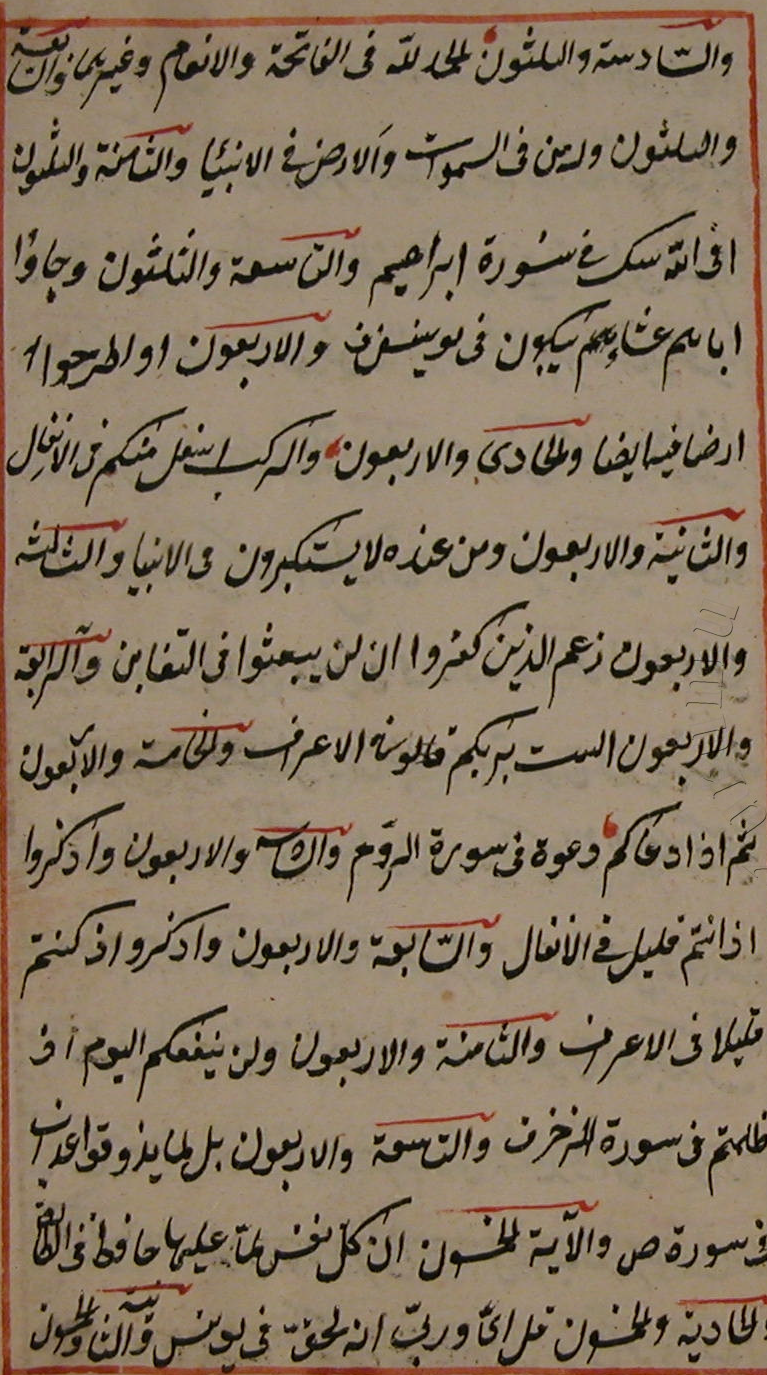 والسادسة والثلثون الحمد لله فى الفاتحة والانعام وغيرهما والسابعة
والثلثون وله من فى السموات والارض فى الانبيا والثامنة والثلثون
افى الله شك فى سورة ابراهيم والتاسعة والثلثون وجاؤا
اباهم عشاء يبكون فى يوسف والاربعون او اطرحوا
ارضا فيها ايضا والحادى والاربعون والركب اسفل منكم فى الانفال
والثانية والاربعون ومن عنده لا يستكبرون فى الانبيا والثالثة
والاربعون زعم الذين كفروا ان لن يبعثوا فى التغابن والرابعة
والاربعون الست بربكم قالو فى الاعراف والخامسة والاربعون
ثم اذا دعاكم دعوة فى سورة الروم والسادسة والاربعون واذكروا
اذ انتم قليل فى الانفال والسابعة والاربعون واذكروا اذ كنتم
قليلا فى الاعراف والثامنة والاربعون ولن ينفعكم اليوم اذ
ظلمتم فى سورة الزخرف والتاسعة والاربعون بل لما يذوقوا عذاب
فى سورة ص والآية الخمسون ان كل نفس لما عليها حافظ فى الطارق
والحادية والخمسون قل اى وربى انه لحق فى يونس والثانية والخمسون